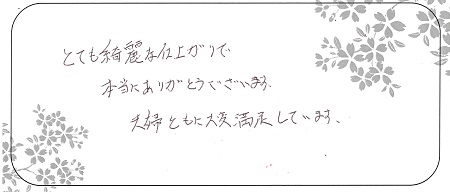 とても綺麗な仕上がりで
本当にありがとうございます、
夫婦ともに大変満足しています、